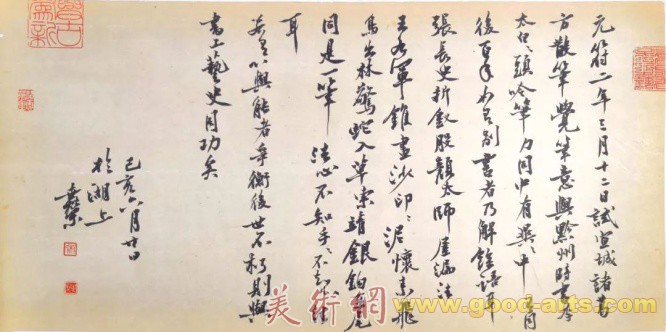 元符二年三月十二日試宣城諸葛
方散筆覺筆意與黔州時書李
太白〻頭吟筆力同中有異〻中有同
後百年如有別書者乃解余語耳
張長史折釵股顏太師屋漏法
王右軍錐畫沙印〻泥懷素飛
鳥出林驚蛇入草索靖銀鉤蠆尾
同是一筆法心不知手〻不知心法
耳
若有以與能者爭衡後世不朽則與
書工藝史同功矣
己亥六月廿日
於湖上
美術網
www.good-arts.com